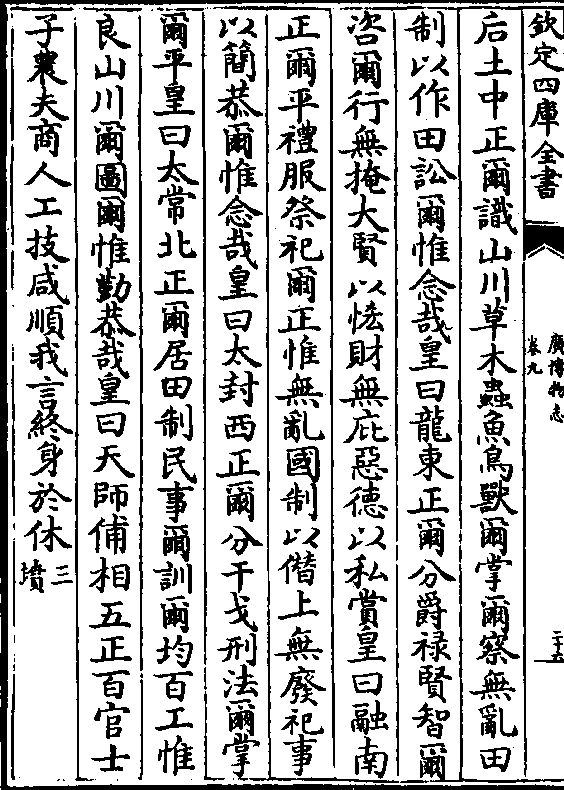 欽定四庫全書
廣博物志
卷九
二十五
后土中正爾識山川草木蟲魚鳥獸爾掌爾察無亂田
制以作田訟爾惟念哉皇曰龍東正爾分爵禄賢智爾
咨爾行無掩大賢以恡財無庇惡德以私賞皇曰融南
正爾平禮服祭祀爾正惟無亂國制以僭上無廢祀事
以簡恭爾惟念哉皇曰太封西正爾分干戈刑法爾掌
爾平皇曰太常北正爾居田制民事爾訓爾均百工惟
良山川爾圖爾惟勤恭哉皇曰天師俌相五正百官士
子農夫商人工技咸順我言終身於休三
墳